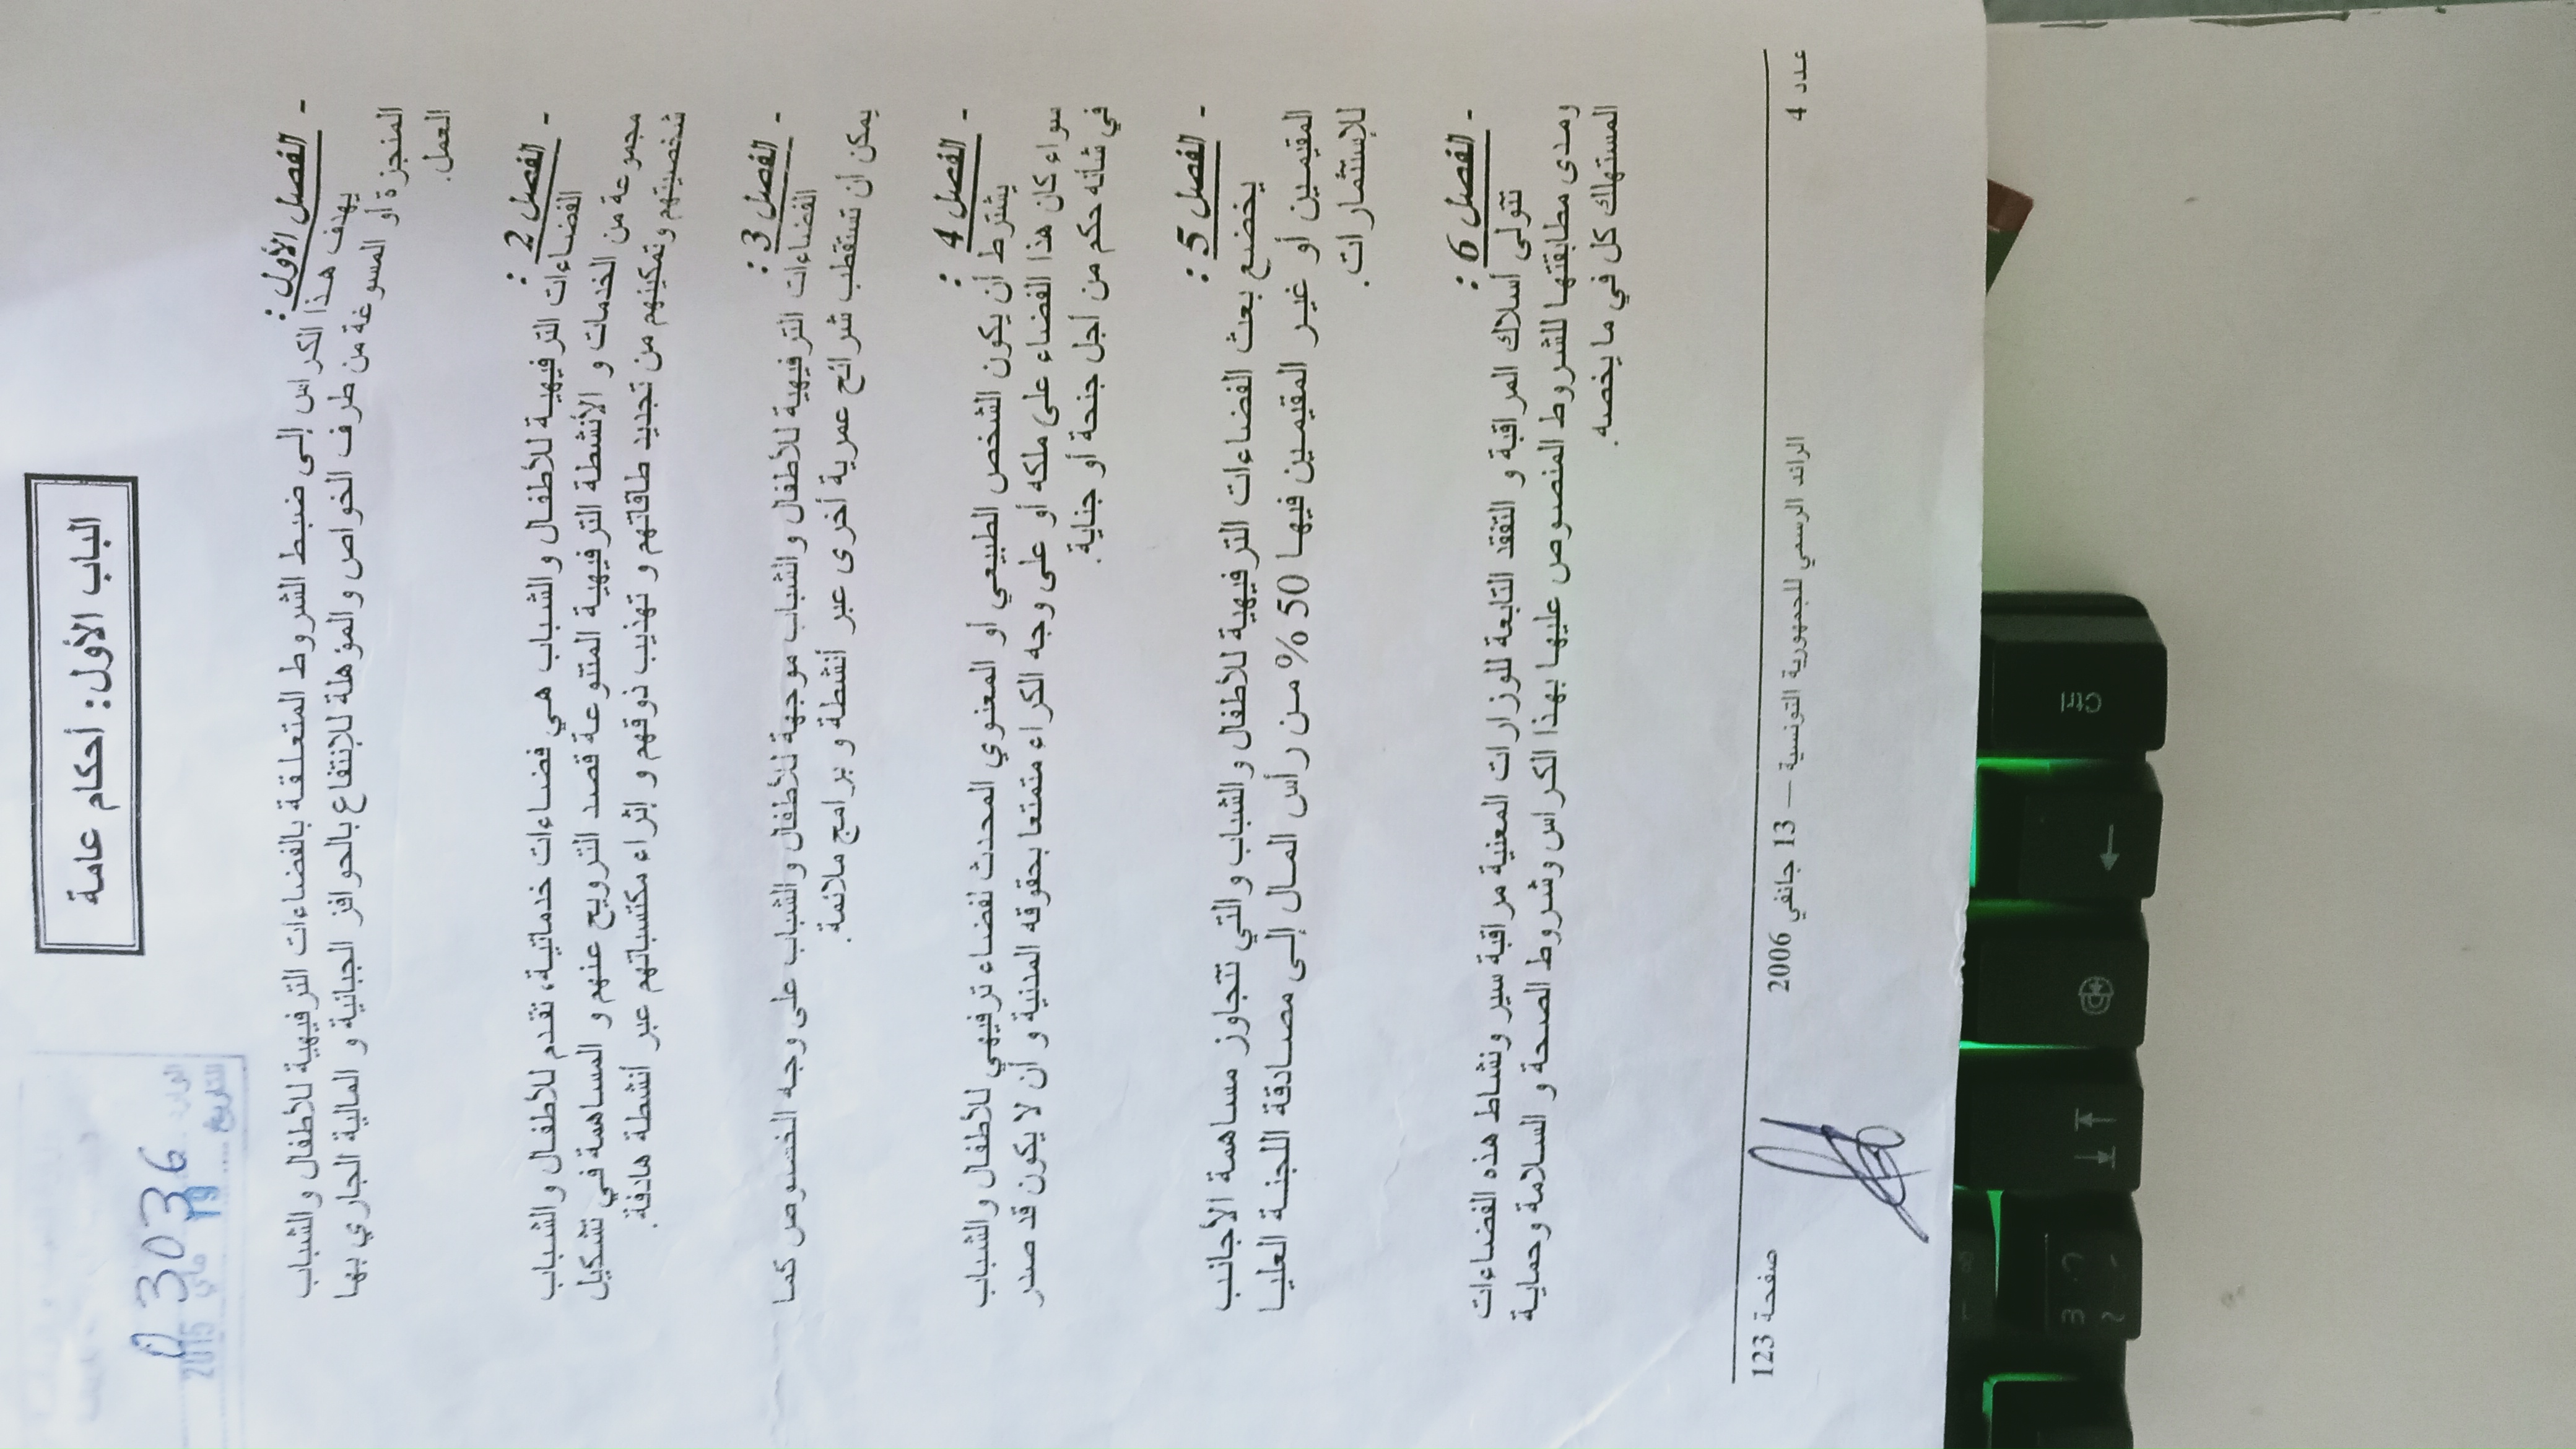 03036
الوارد
التاريخ ..... 19 ماي 2015
الباب الأول: أحكام عامة
- الفصل الأول :
يهدف هذا الكراس إلى ضبط الشروط المتعلقة بالفضاءات الترفيهية للأطفال والشباب
المنجزة أو المسوغة من طرف الخواص والمؤهلة للإنتفاع بالحوافز الجبائية و المالية الجاري بها
العمل.
- الفصل 2 :
الفضاءات الترفيهية للأطفال والشباب هي فضاءات خدماتية، تقدم للأطفال والشباب
مجموعة من الخدمات و الأنشطة الترفيهية المتنوعة قصد الترويح عنهم و المساهمة في تشكيل
شخصيتهم وتمكينهم من تجديد طاقاتهم و تهذيب ذوقهم و إثراء مكتسباتهم عبر أنشطة هادفة.
- الفصل 3 :
الفضاءات الترفيهية للأطفال والشباب موجهة للأطفال والشباب على وجه الخصوص كما
يمكن أن تستقطب شرائح عمرية أخرى عبر أنشطة و برامج ملائمة.
- الفصل 4 :
يشترط أن يكون الشخص الطبيعي أو المعنوي المحدث لفضاء ترفيهي للأطفال والشباب
سواء كان هذا الفضاء على ملكه أو على وجه الكراء متمتعا بحقوقه المدنية و أن لا يكون قد صدر
في شأنه حكم من أجل جنحة أو جناية.
- الفصل 5 :
يخضع بعث الفضاءات الترفيهية للأطفال والشباب والتي تتجاوز مساهمة الأجانب
المقيمين أو غير المقيمين فيها 50 % من رأس المال إلى مصادقة اللجنة العليا
للإستثمارات.
- الفصل 6 :
تتولى أسلاك المراقبة و التفقد التابعة للوزارات المعنية مراقبة سير ونشاط هذه الفضاءات
ومدى مطابقتها للشروط المنصوص عليها بهذا الكراس وشروط الصحة و السلامة وحماية
المستهلك كل في ما يخصه.
عدد 4 الرائد الرسمي للجمهورية التونسية — 13 جانفي 2006 صفحة 123
Ctrl
3
2